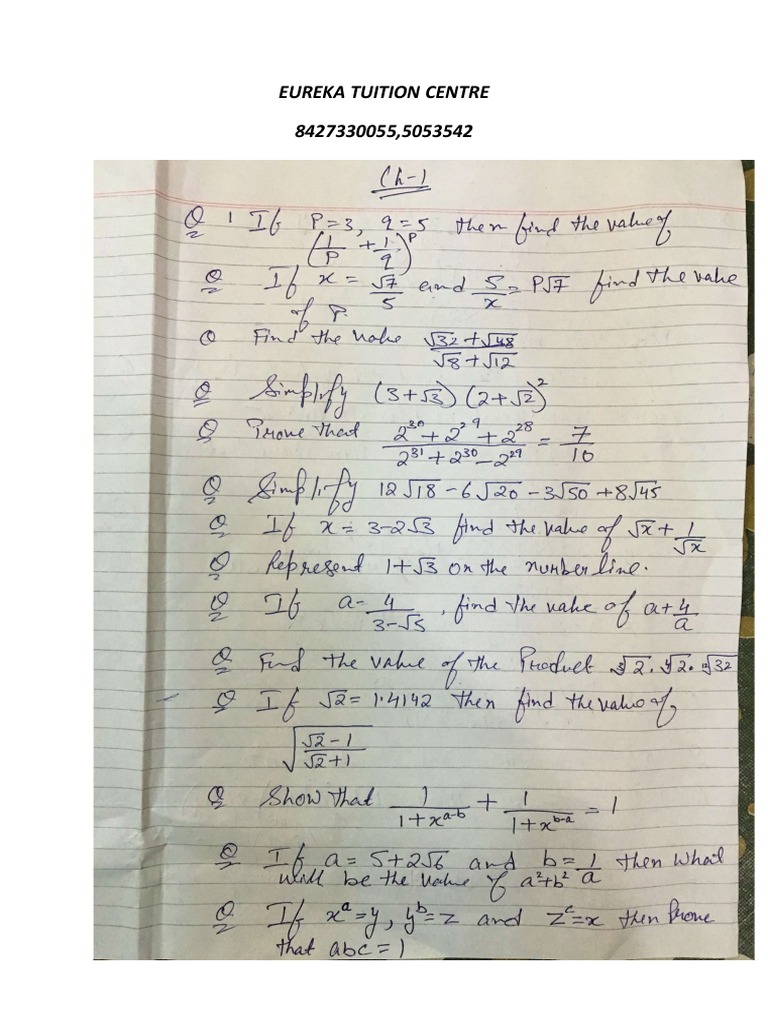 EUREKA TUITION CENTRE
8427330055,5053542
Ch-1
Q 1 If P=3, q=5 then find the value of
(1/P + 1/q)^P
Q If x = √7/5 and 5/x = P√7 find the value
of P.
Q Find the value (√32+√48)/(√8+√12)
Q Simplify (3+√3)(2+√2)²
Q Prove that (2³⁰+2²⁹+2²⁸)/(2³¹+2³⁰-2²⁹) = 7/10
Q Simplify 12√18-6√20-3√50+8√45
Q If x = 3-2√3 find the value of √x+1/√x
Q Represent 1+√3 on the number line.
Q If a = 4/(3-√5), find the value of a+4/a
Q Find the value of the Product ∛2.∜2.¹²√32
Q If √2=1.4142 then find the value of
√((√2-1)/(√2+1))
Q Show that 1/(1+x^(a-b)) + 1/(1+x^(b-a)) = 1
Q If a=5+2√6 and b=1/a then what
will be the value of a²+b²
Q If x^a=y, y^b=z and z^c=x then Prove
that abc=1